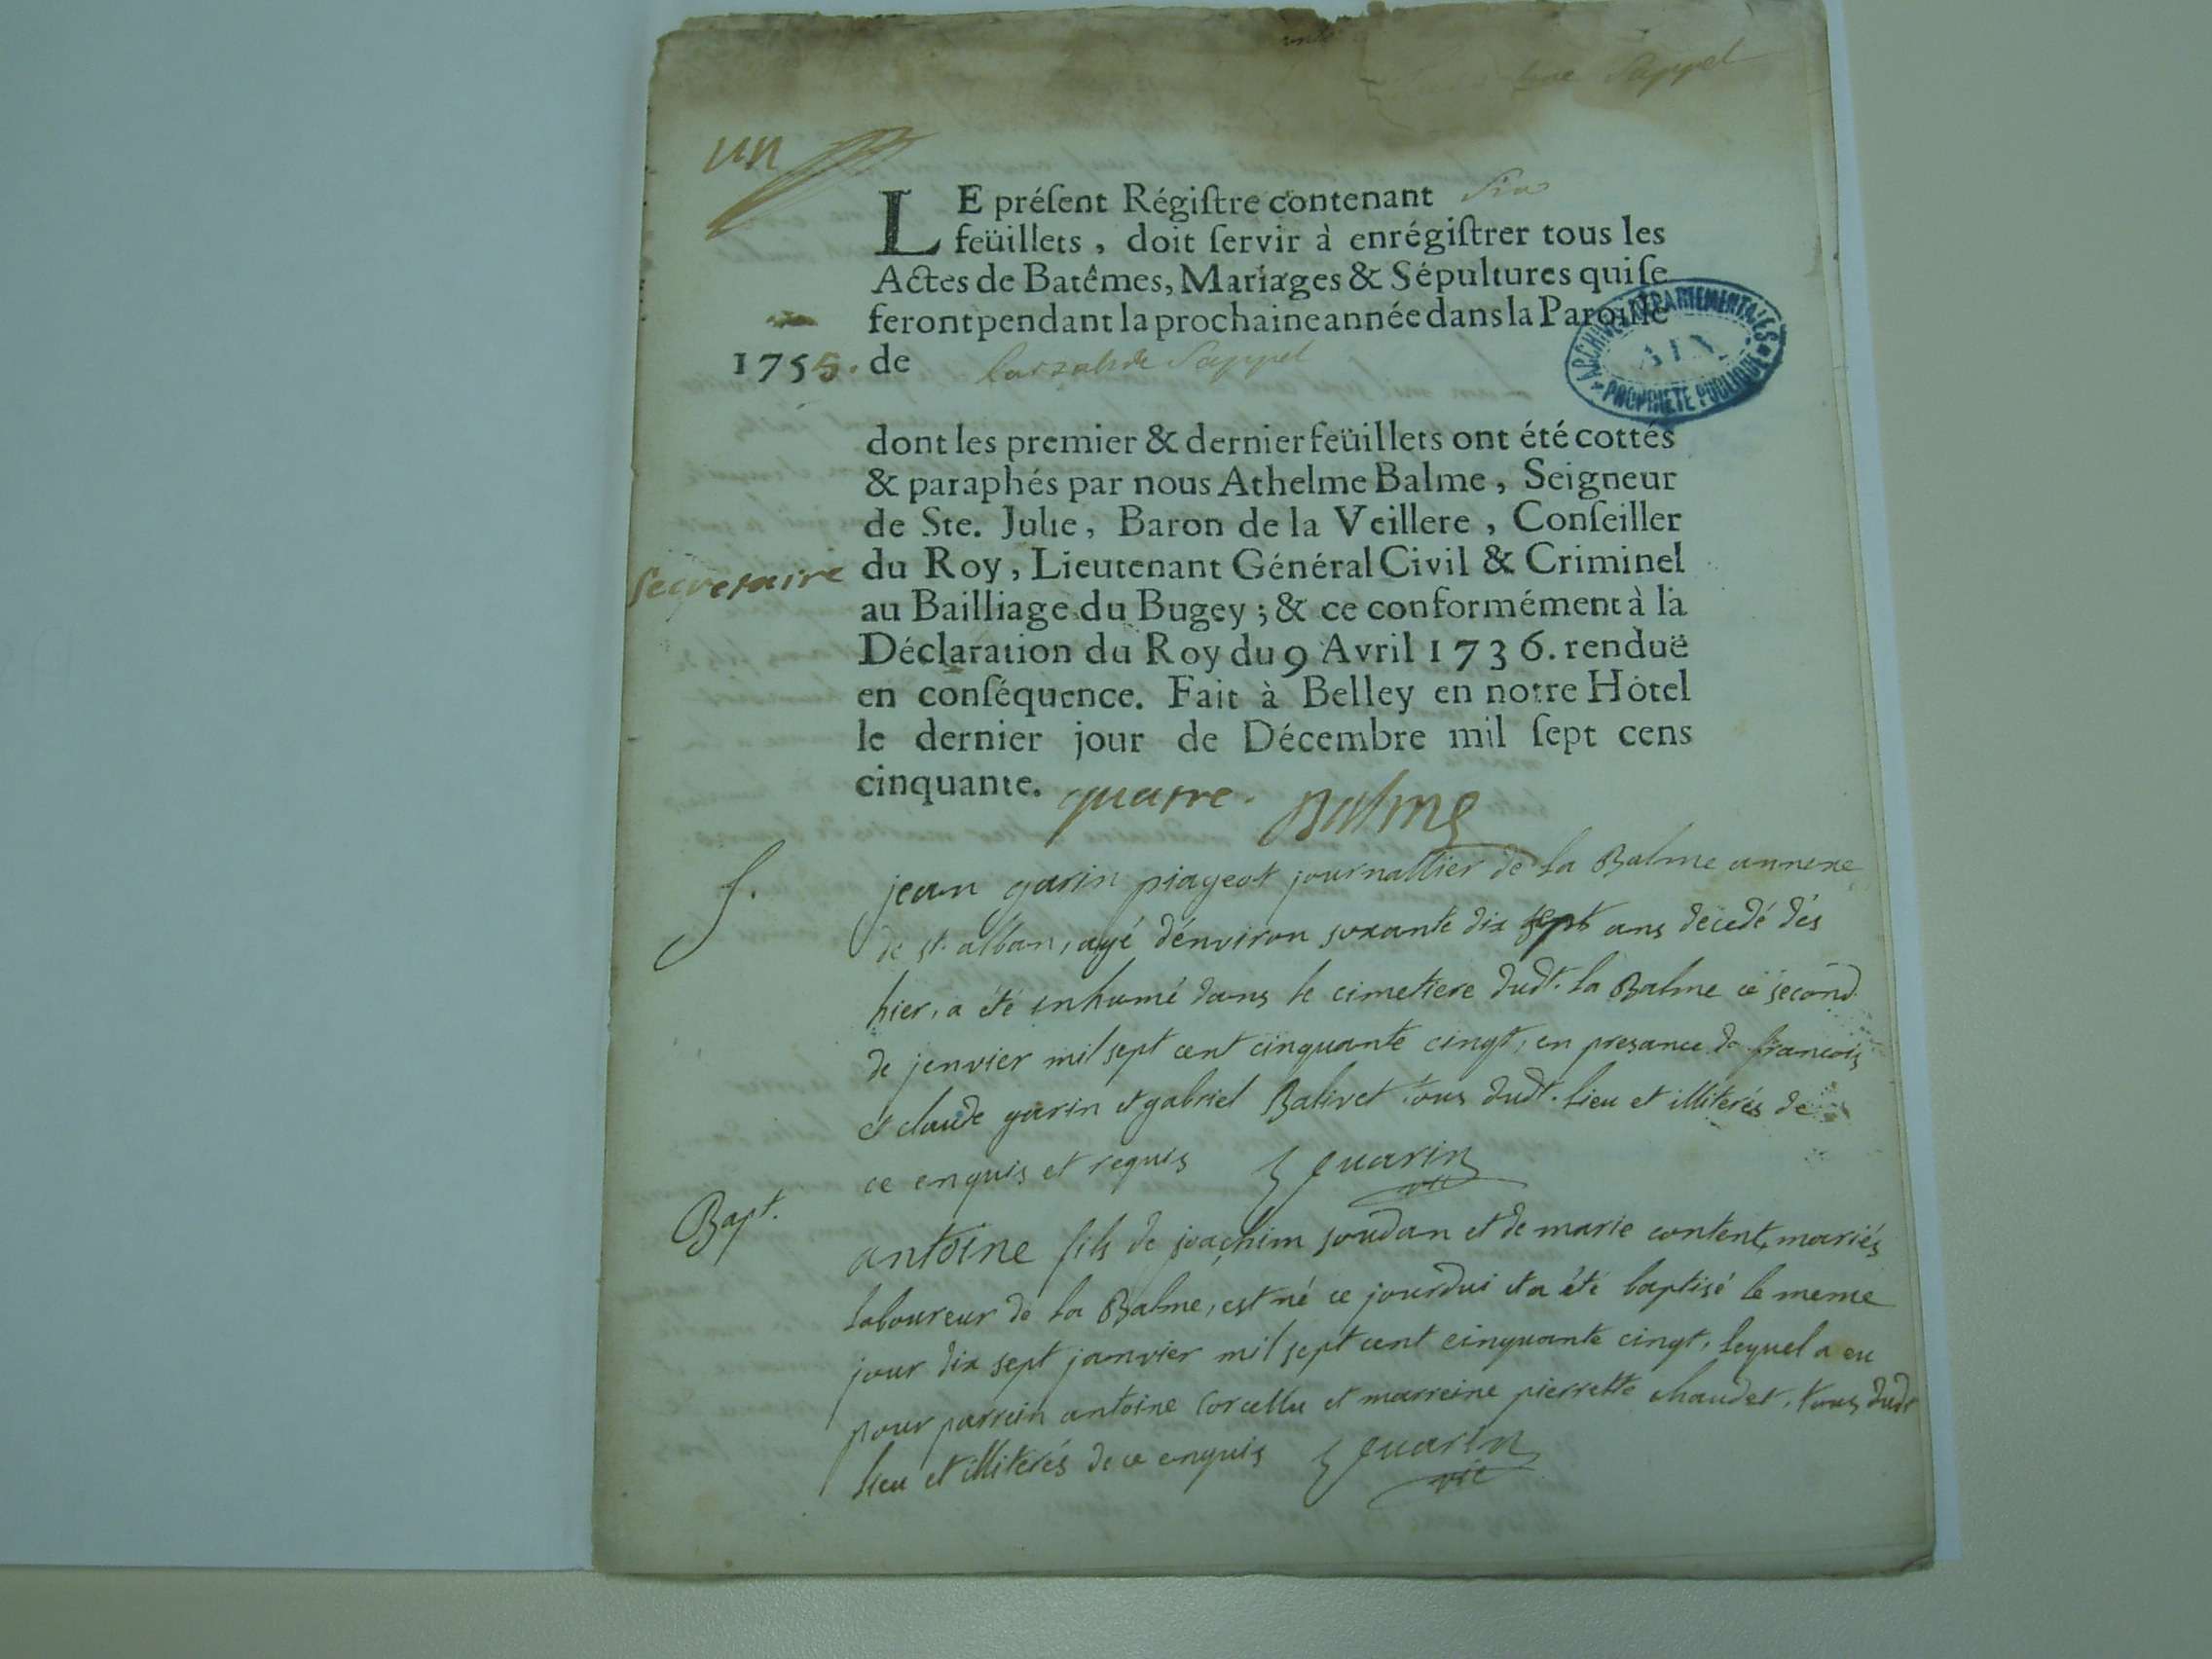 Sappel
un
LE préſent Régiſtre contenant Six
feüillets, doit ſervir à enrégiſtrer tous les
Actes de Batêmes, Mariages & Sépultures qui ſe
feront pendant la prochaine année dans la Paroiſſe
1755. de Sappel
ARCHIVES DÉPARTEMENTALES
AIN
PROPRIÉTÉ PUBLIQUE
dont les premier & dernier feüillets ont été cottés
& paraphés par nous Athelme Balme, Seigneur
de Ste. Julie, Baron de la Veillere, Conſeiller
Secretaire du Roy, Lieutenant Général Civil & Criminel
au Bailliage du Bugey; & ce conformément à la
Déclaration du Roy du 9 Avril 1736. renduë
en conſéquence. Fait à Belley en notre Hôtel
le dernier jour de Décembre mil ſept cens
cinquante. quatre. Balme
S. jean garin piageot journallier de la Balme annexe
de st. alban, agé d'énviron soxante dix sept ans décedé dés
hier, a été inhumé dans le cimetiere dudt. la Balme ce second
de jenvier mil sept cent cinquante cinqt, en presance de francois
et claude garin et gabriel Balivet tous dudt. lieu et illiterés de
ce enquis et requis Guarin
vic
Bapt. antoine fils de joachim soudan et de marie content, mariés
laboureur de la Balme, est né ce jourdui et a été baptisé le meme
jour dix sept janvier mil sept cent cinquante cinqt, lequel a eu
pour parrein antoine Corcellu et marreine pierrette chaudet, tous dudt
lieu et illiterés de ce enquis Guarin
vic